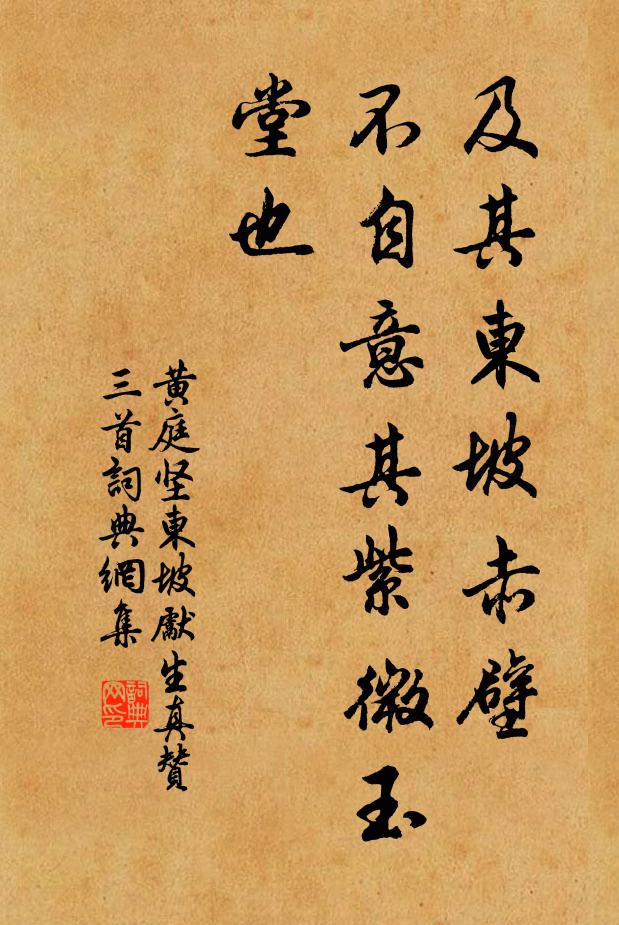 及其東坡赤壁
不自意其紫微玉
堂也
黄庭坚東坡獻生真贊
三首詞典網集
詞典网印